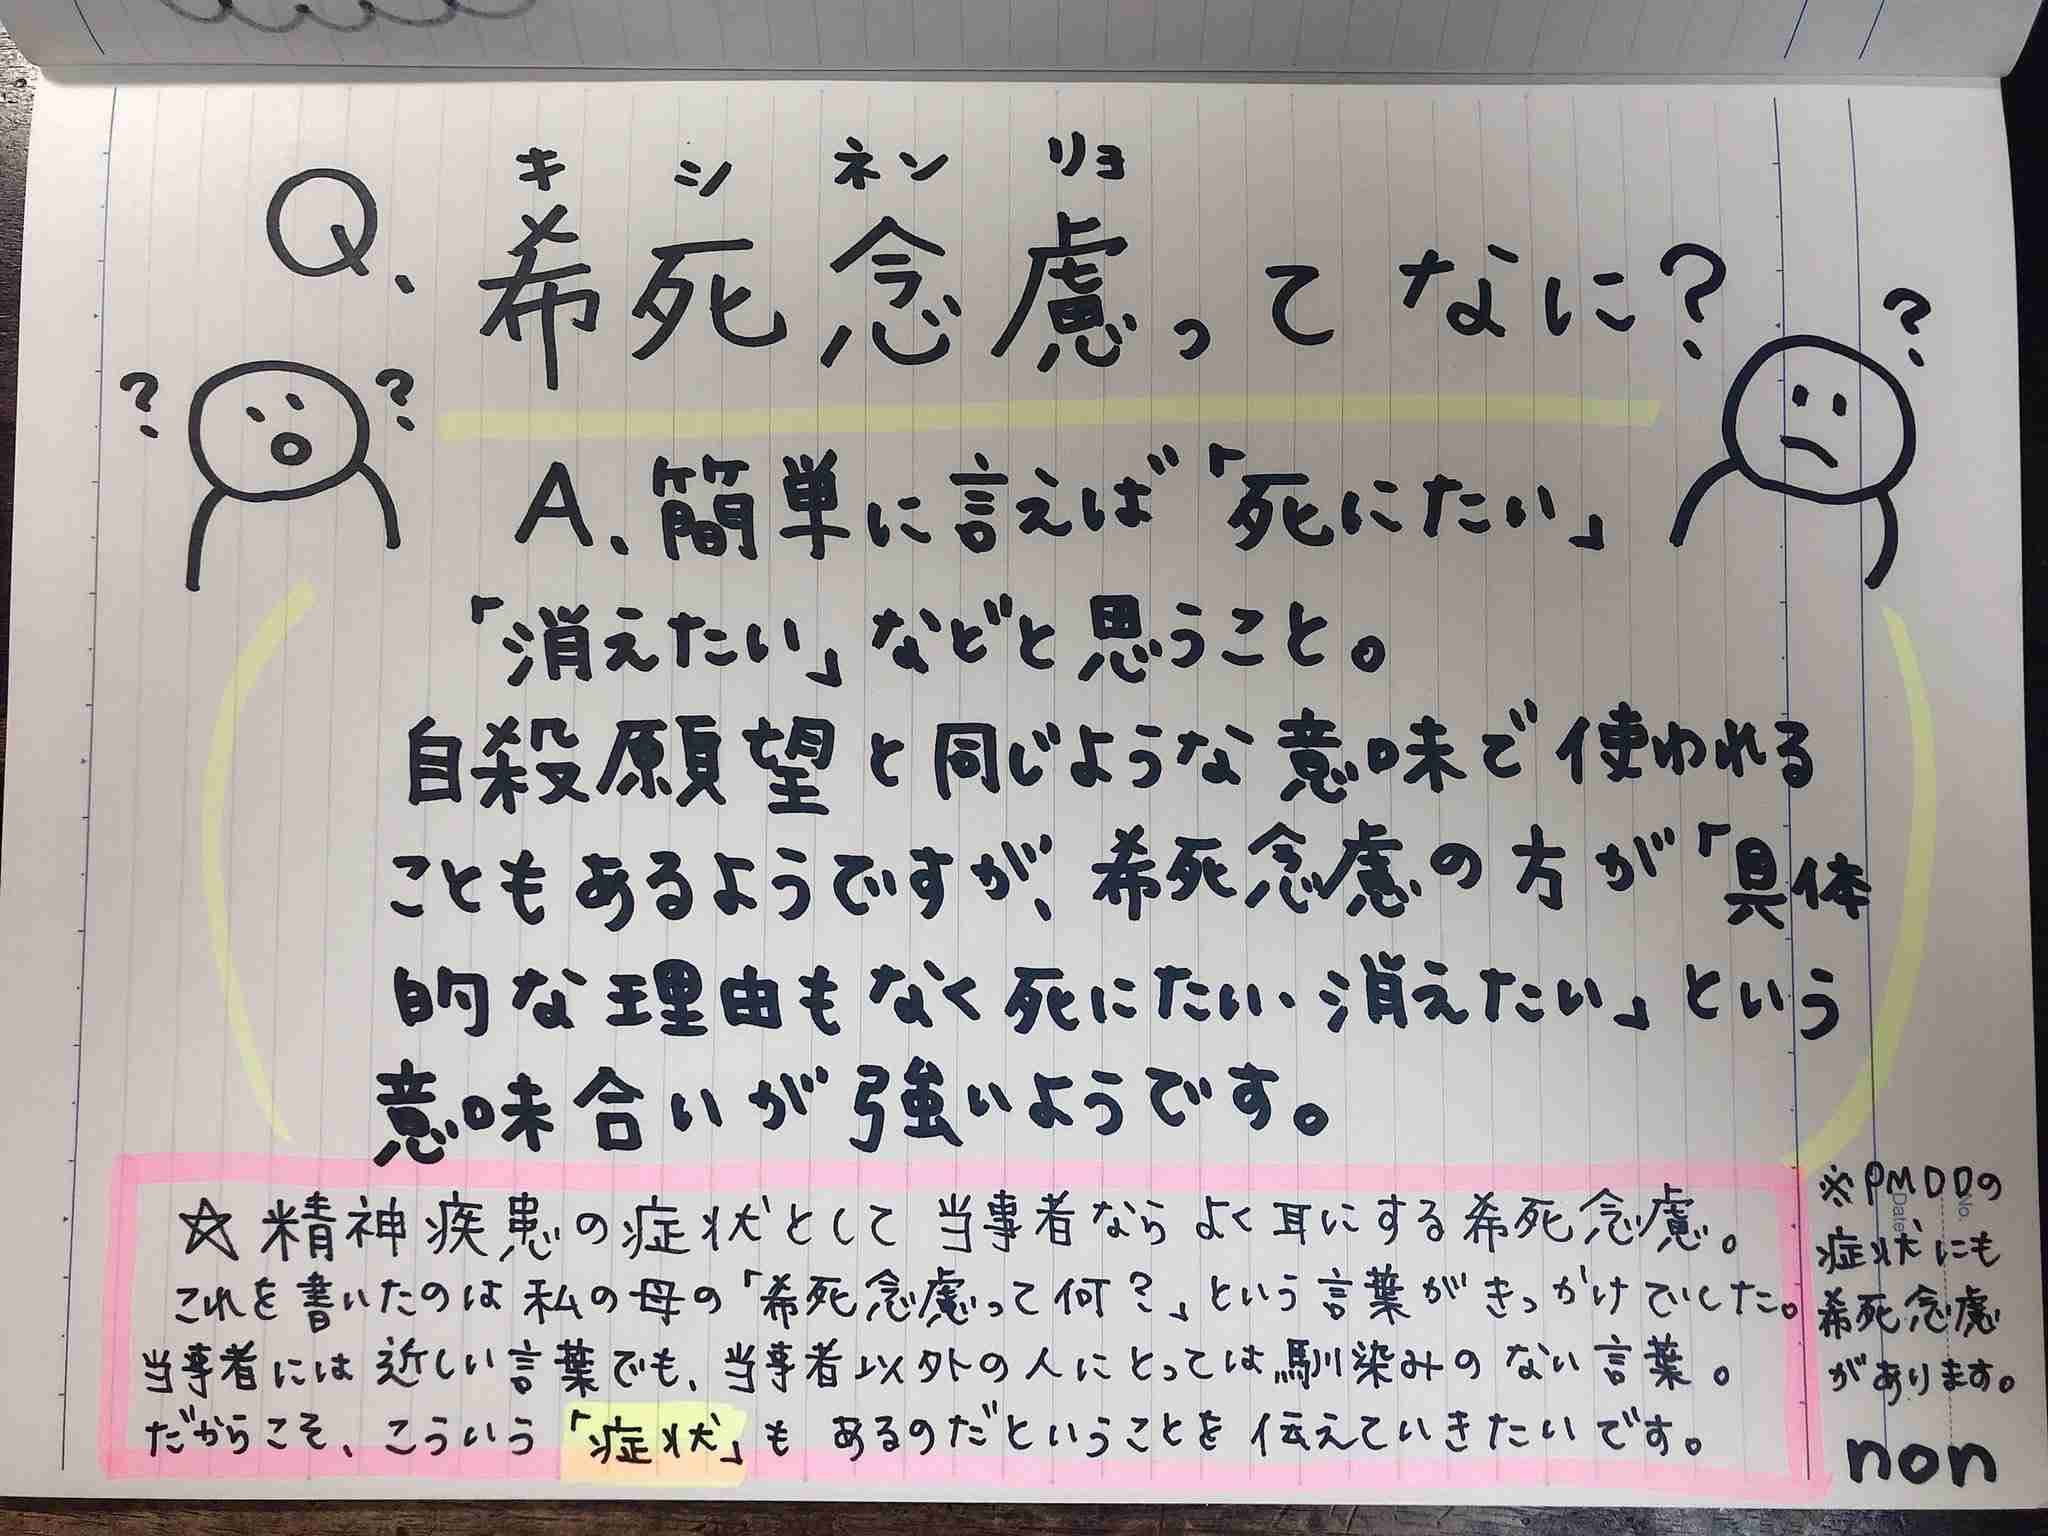 キ シ ネン リョ
Q、希死念慮ってなに?
? ? ?
A、簡単に言えば「死にたい」
「消えたい」などと思うこと。
自殺願望と同じような意味で使われる
こともあるようですが、希死念慮の方が「具体
的な理由もなく死にたい・消えたい」という
意味合いが強いようです。
☆精神疾患の症状として当事者ならよく耳にする希死念慮。
これを書いたのは私の母の「希死念慮って何?」という言葉がきっかけでした。
当事者には近しい言葉でも、当事者以外の人にとっては馴染みのない言葉。
だからこそ、こういう「症状」もあるのだということを伝えていきたいです。
※PMDDの
症状にも
希死念慮
があります。
non
No.
Date